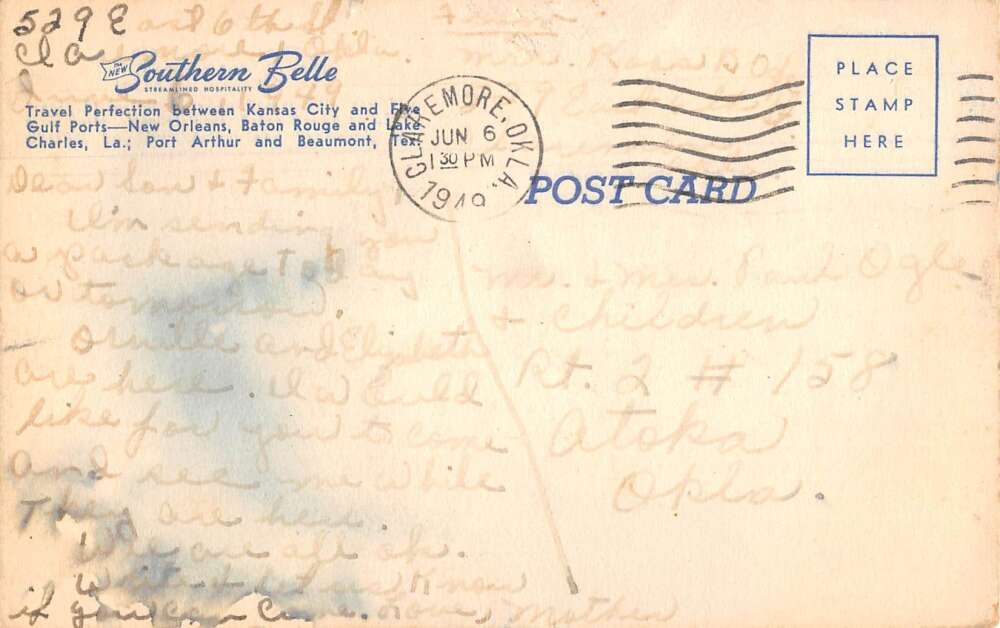 529 East 6th St
Claremore, Okla.
From
Mrs. Rosa
THE NEW Southern Belle
STREAMLINED HOSPITALITY
Travel Perfection between Kansas City and Five
Gulf Ports—New Orleans, Baton Rouge and Lake
Charles, La.; Port Arthur and Beaumont, Tex.
CLAREMORE, OKLA.
JUN 6
1 30 PM
1949
PLACE
STAMP
HERE
POST CARD
Dear Son & family
I'm sending you
a package today
or tomorrow.
Orville and Elizabeth
are here I would
like for you to come
and see me while
They are here.
We are all ok.
Write & let us know
if you can come. Love, Mother
Mr. & Mrs. Paul Ogle
& children
Rt. 2 # 158
Atoka
Okla.